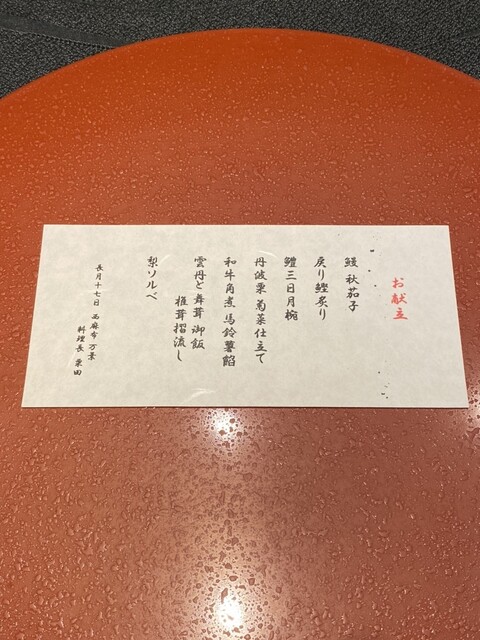 お献立
鰻 秋茄子
戻り鰹炙り
鱧三日月椀
丹波栗 菊菜仕立て
和牛角煮 馬鈴薯餡
雲丹と舞茸 御飯
椎茸摺流し
梨ソルベ
長月十七日 西麻布 万景
料理長 栗田